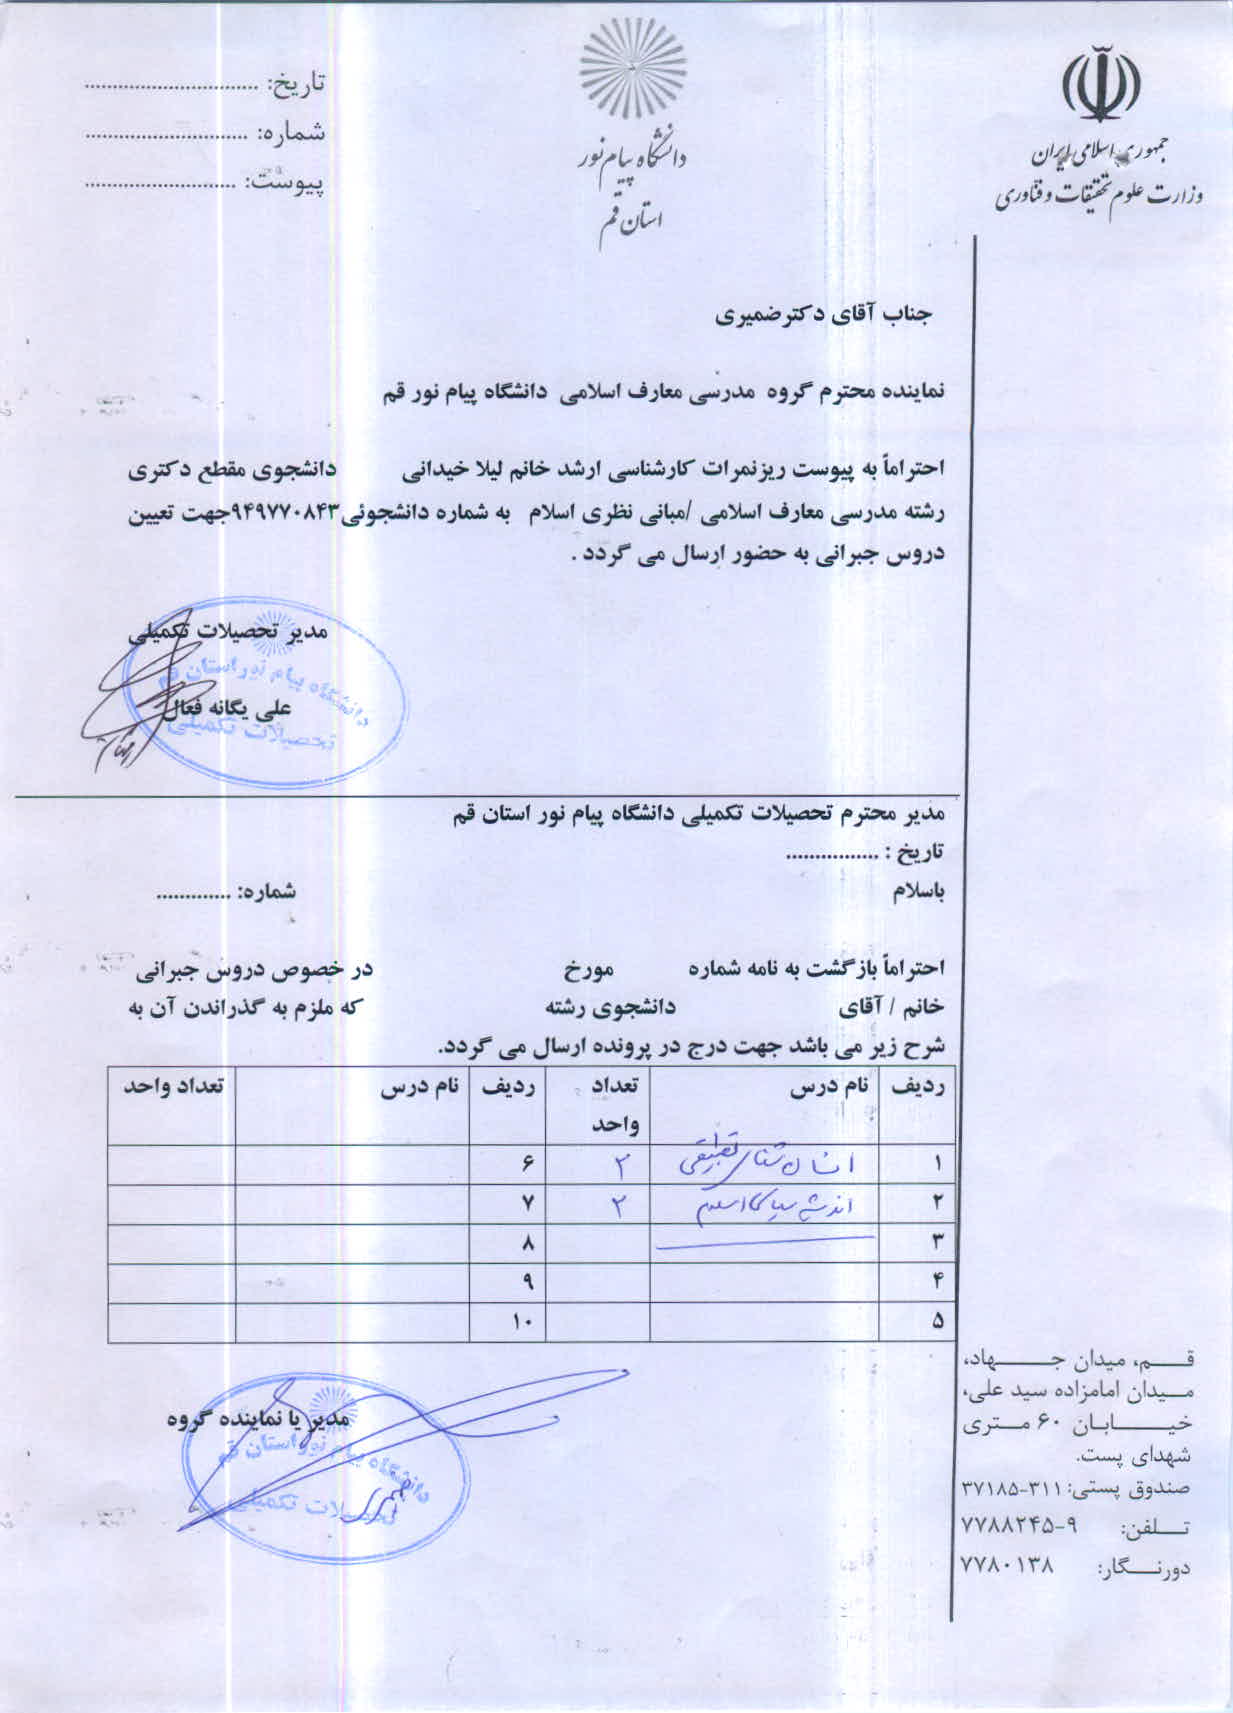 جمهوری اسلامی ایران
وزارت علوم تحقیقات و فناوری
دانشگاه پیام نور
استان قم
تاریخ: ................................
شماره: ..............................
پیوست: ............................
جناب آقای دکترضمیری
نماینده محترم گروه مدرسی معارف اسلامی دانشگاه پیام نور قم
احتراماً به پیوست ریزنمرات کارشناسی ارشد خانم لیلا خیدانی دانشجوی مقطع دکتری
رشته مدرسی معارف اسلامی /مبانی نظری اسلام به شماره دانشجوئی۹۴۹۷۷۰۸۴۳جهت تعیین
دروس جبرانی به حضور ارسال می گردد .
مدیر تحصیلات تکمیلی
علی یگانه فعال
دانشگاه پیام نور استان قم
تحصیلات تکمیلی
مدیر محترم تحصیلات تکمیلی دانشگاه پیام نور استان قم
تاریخ : ................
باسلام شماره: .............
احتراماً بازگشت به نامه شماره مورخ در خصوص دروس جبرانی
خانم / آقای دانشجوی رشته که ملزم به گذراندن آن به
شرح زیر می باشد جهت درج در پرونده ارسال می گردد.
ردیف نام درس تعداد واحد ردیف نام درس تعداد واحد
۱ انسان شناسی تطبیقی ۲ ۶
۲ اندیشه سیاسی اسلام ۲ ۷
۳ ۸
۴ ۹
۵ ۱۰
مدیر یا نماینده گروه
دانشگاه پیام نور استان قم
تحصیلات تکمیلی
قم، میدان جهاد،
میدان امامزاده سید علی،
خیابان ۶۰ متری
شهدای پست.
صندوق پستی: ۳۱۱-۳۷۱۸۵
تلفن: ۹-۷۷۸۸۲۴۵
دورنگار: ۷۷۸۰۱۳۸